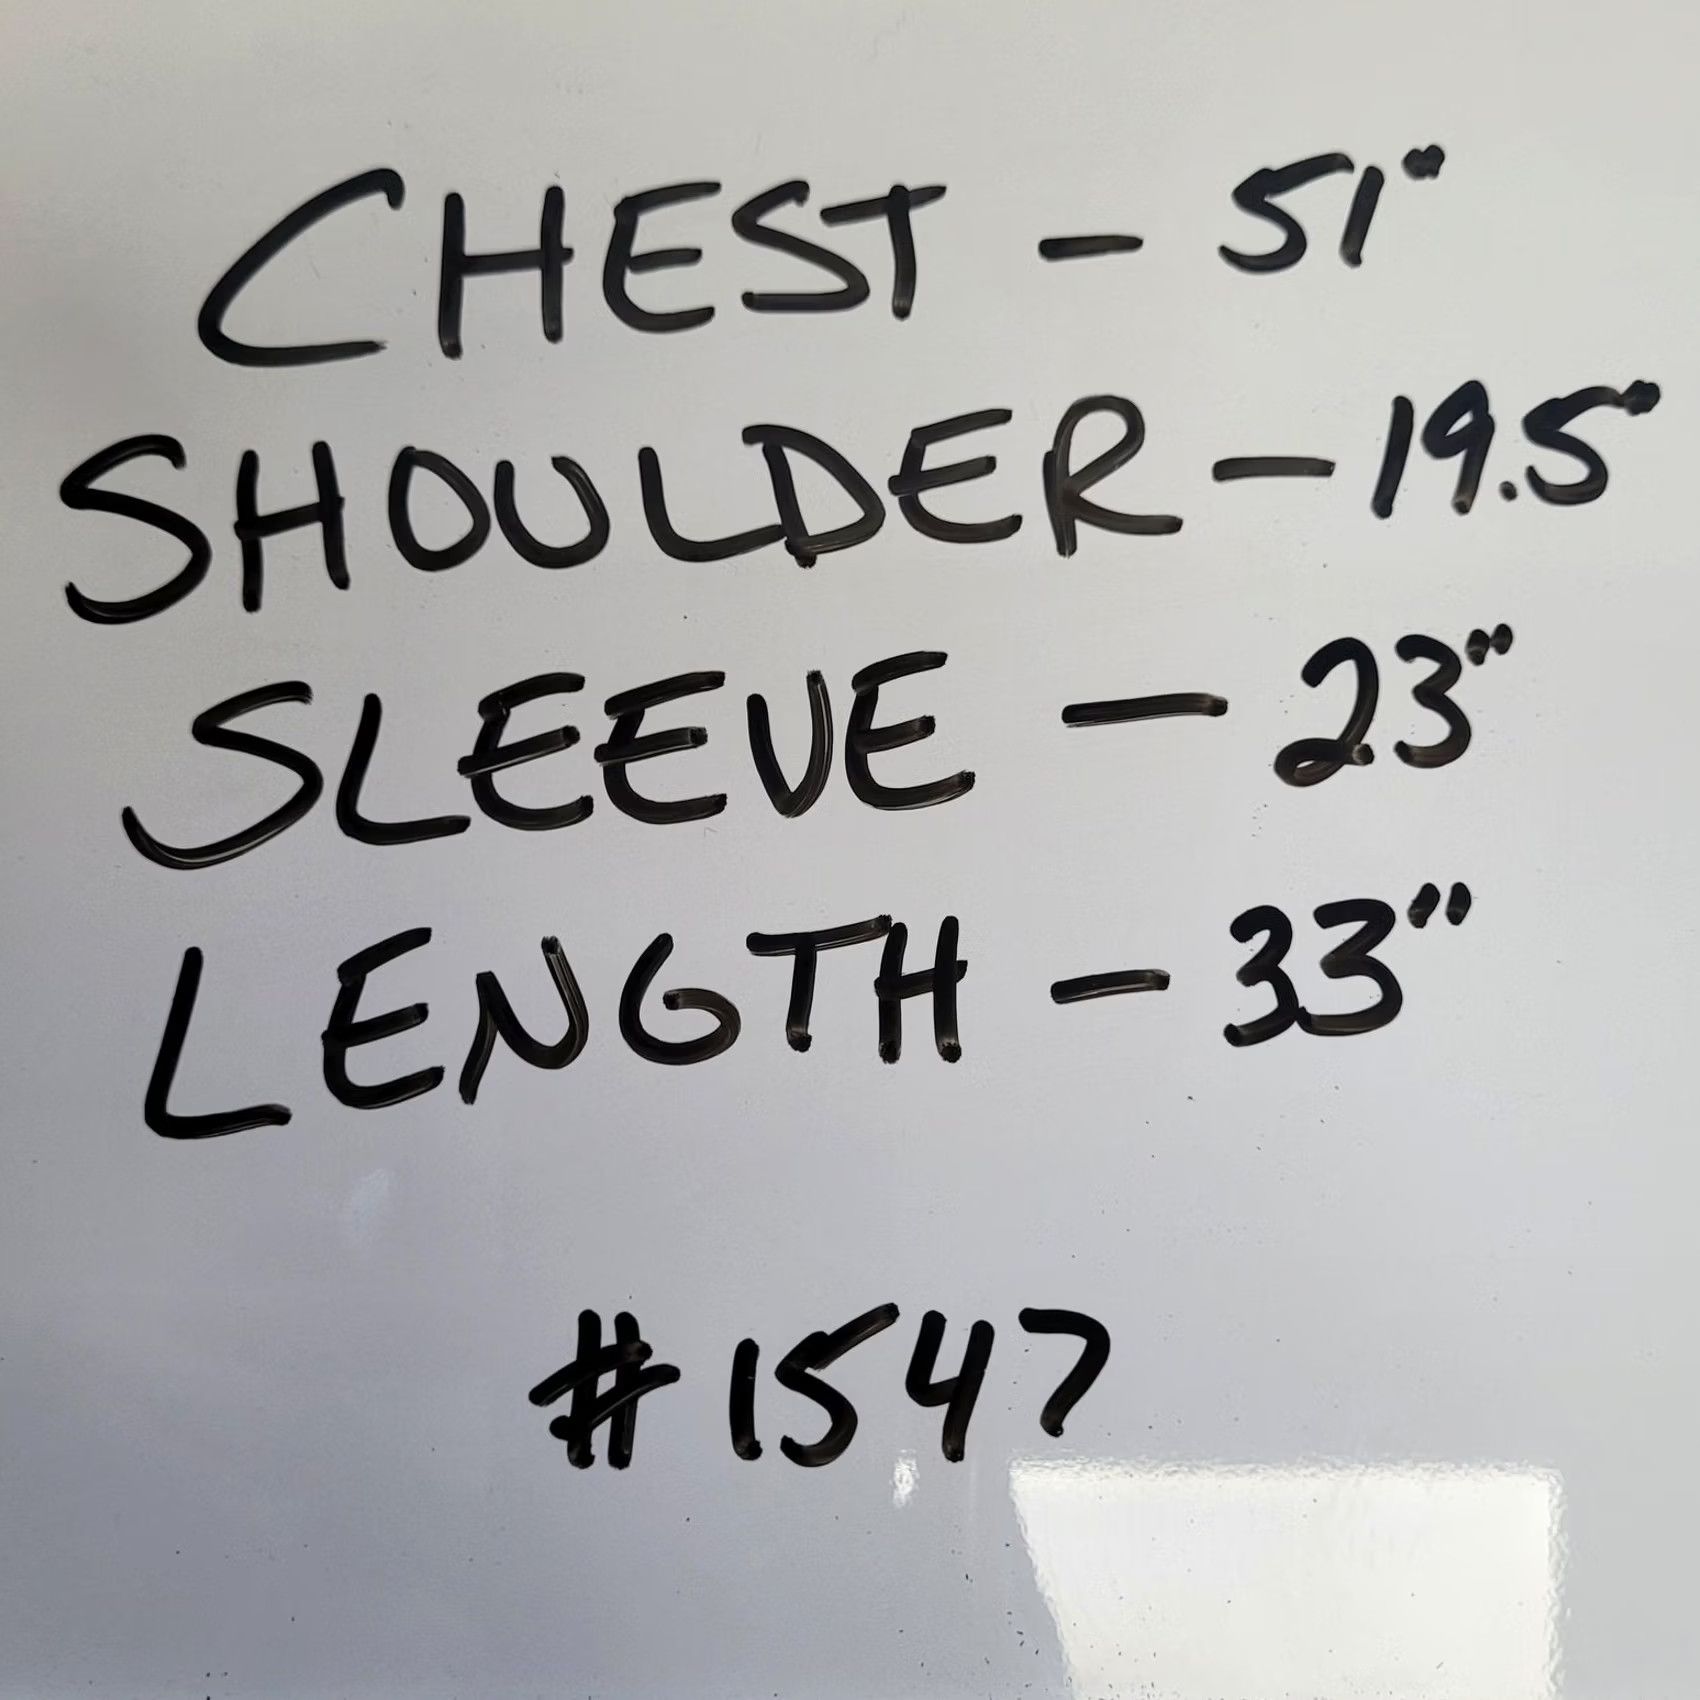 CHEST - 51"
SHOULDER - 19.5"
SLEEVE - 23"
LENGTH - 33"
#1547